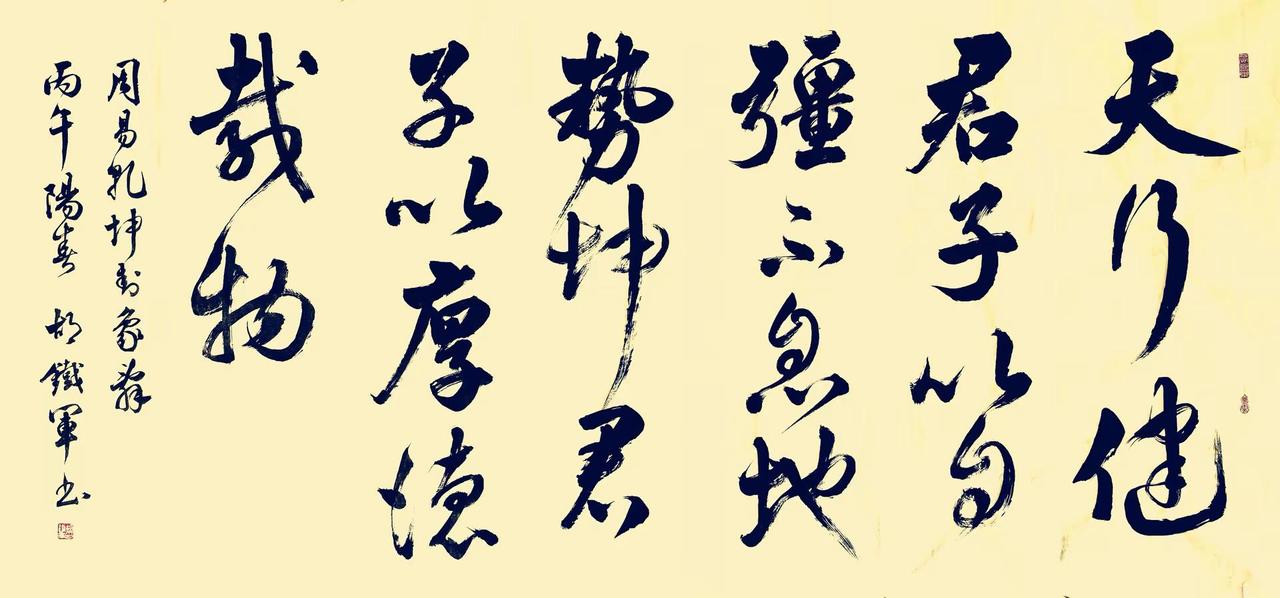 天行健
君子以自
彊不息地
勢坤君
子以厚德
載物
周易乾坤卦象辭
丙午陽春 胡鐵軍书